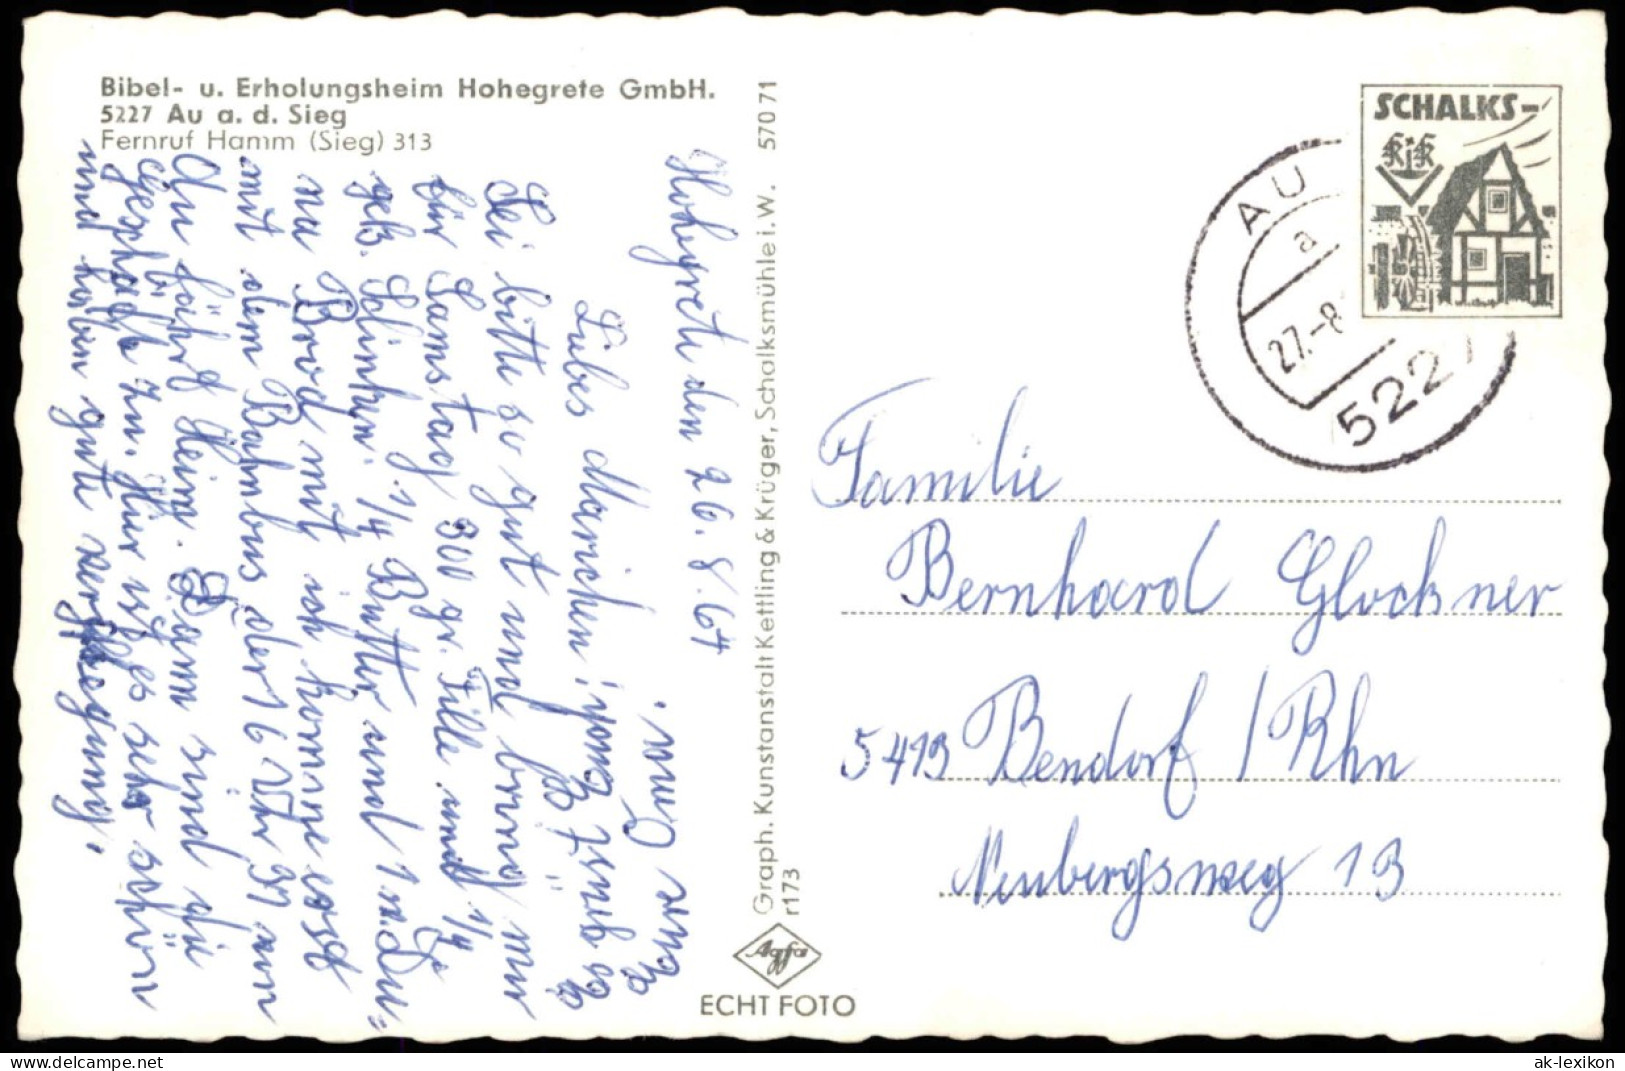 Bibel- u. Erholungsheim Hohegrete GmbH.
5227 Au a. d. Sieg
Fernruf Hamm (Sieg) 313
Hohegrete den 26.8.64
Liebes Marichen!
Sei bitte so gut und bring mir
für Samstag 300 gr. und 1/4
gek. Schinken. 1/4 Butter und 1
Brod mit ich komme erst
mit dem Bahnbus der 16 Uhr 37 von
Au fährt Heim. Dann sind die
zu. Hier ist es sehr schön
und haben gute
Eure Oma.
Graph. Kunstanstalt Kettling & Krüger, Schalksmühle i. W. 570 71
r173
Agfa
ECHT FOTO
SCHALKS-
KiK
AU
a
27.-8
5227
Familie
Bernhard Glockner
5413 Bendorf / Rhn
Neubergsweg 13
ak-lexikon.de
ak-lexikon